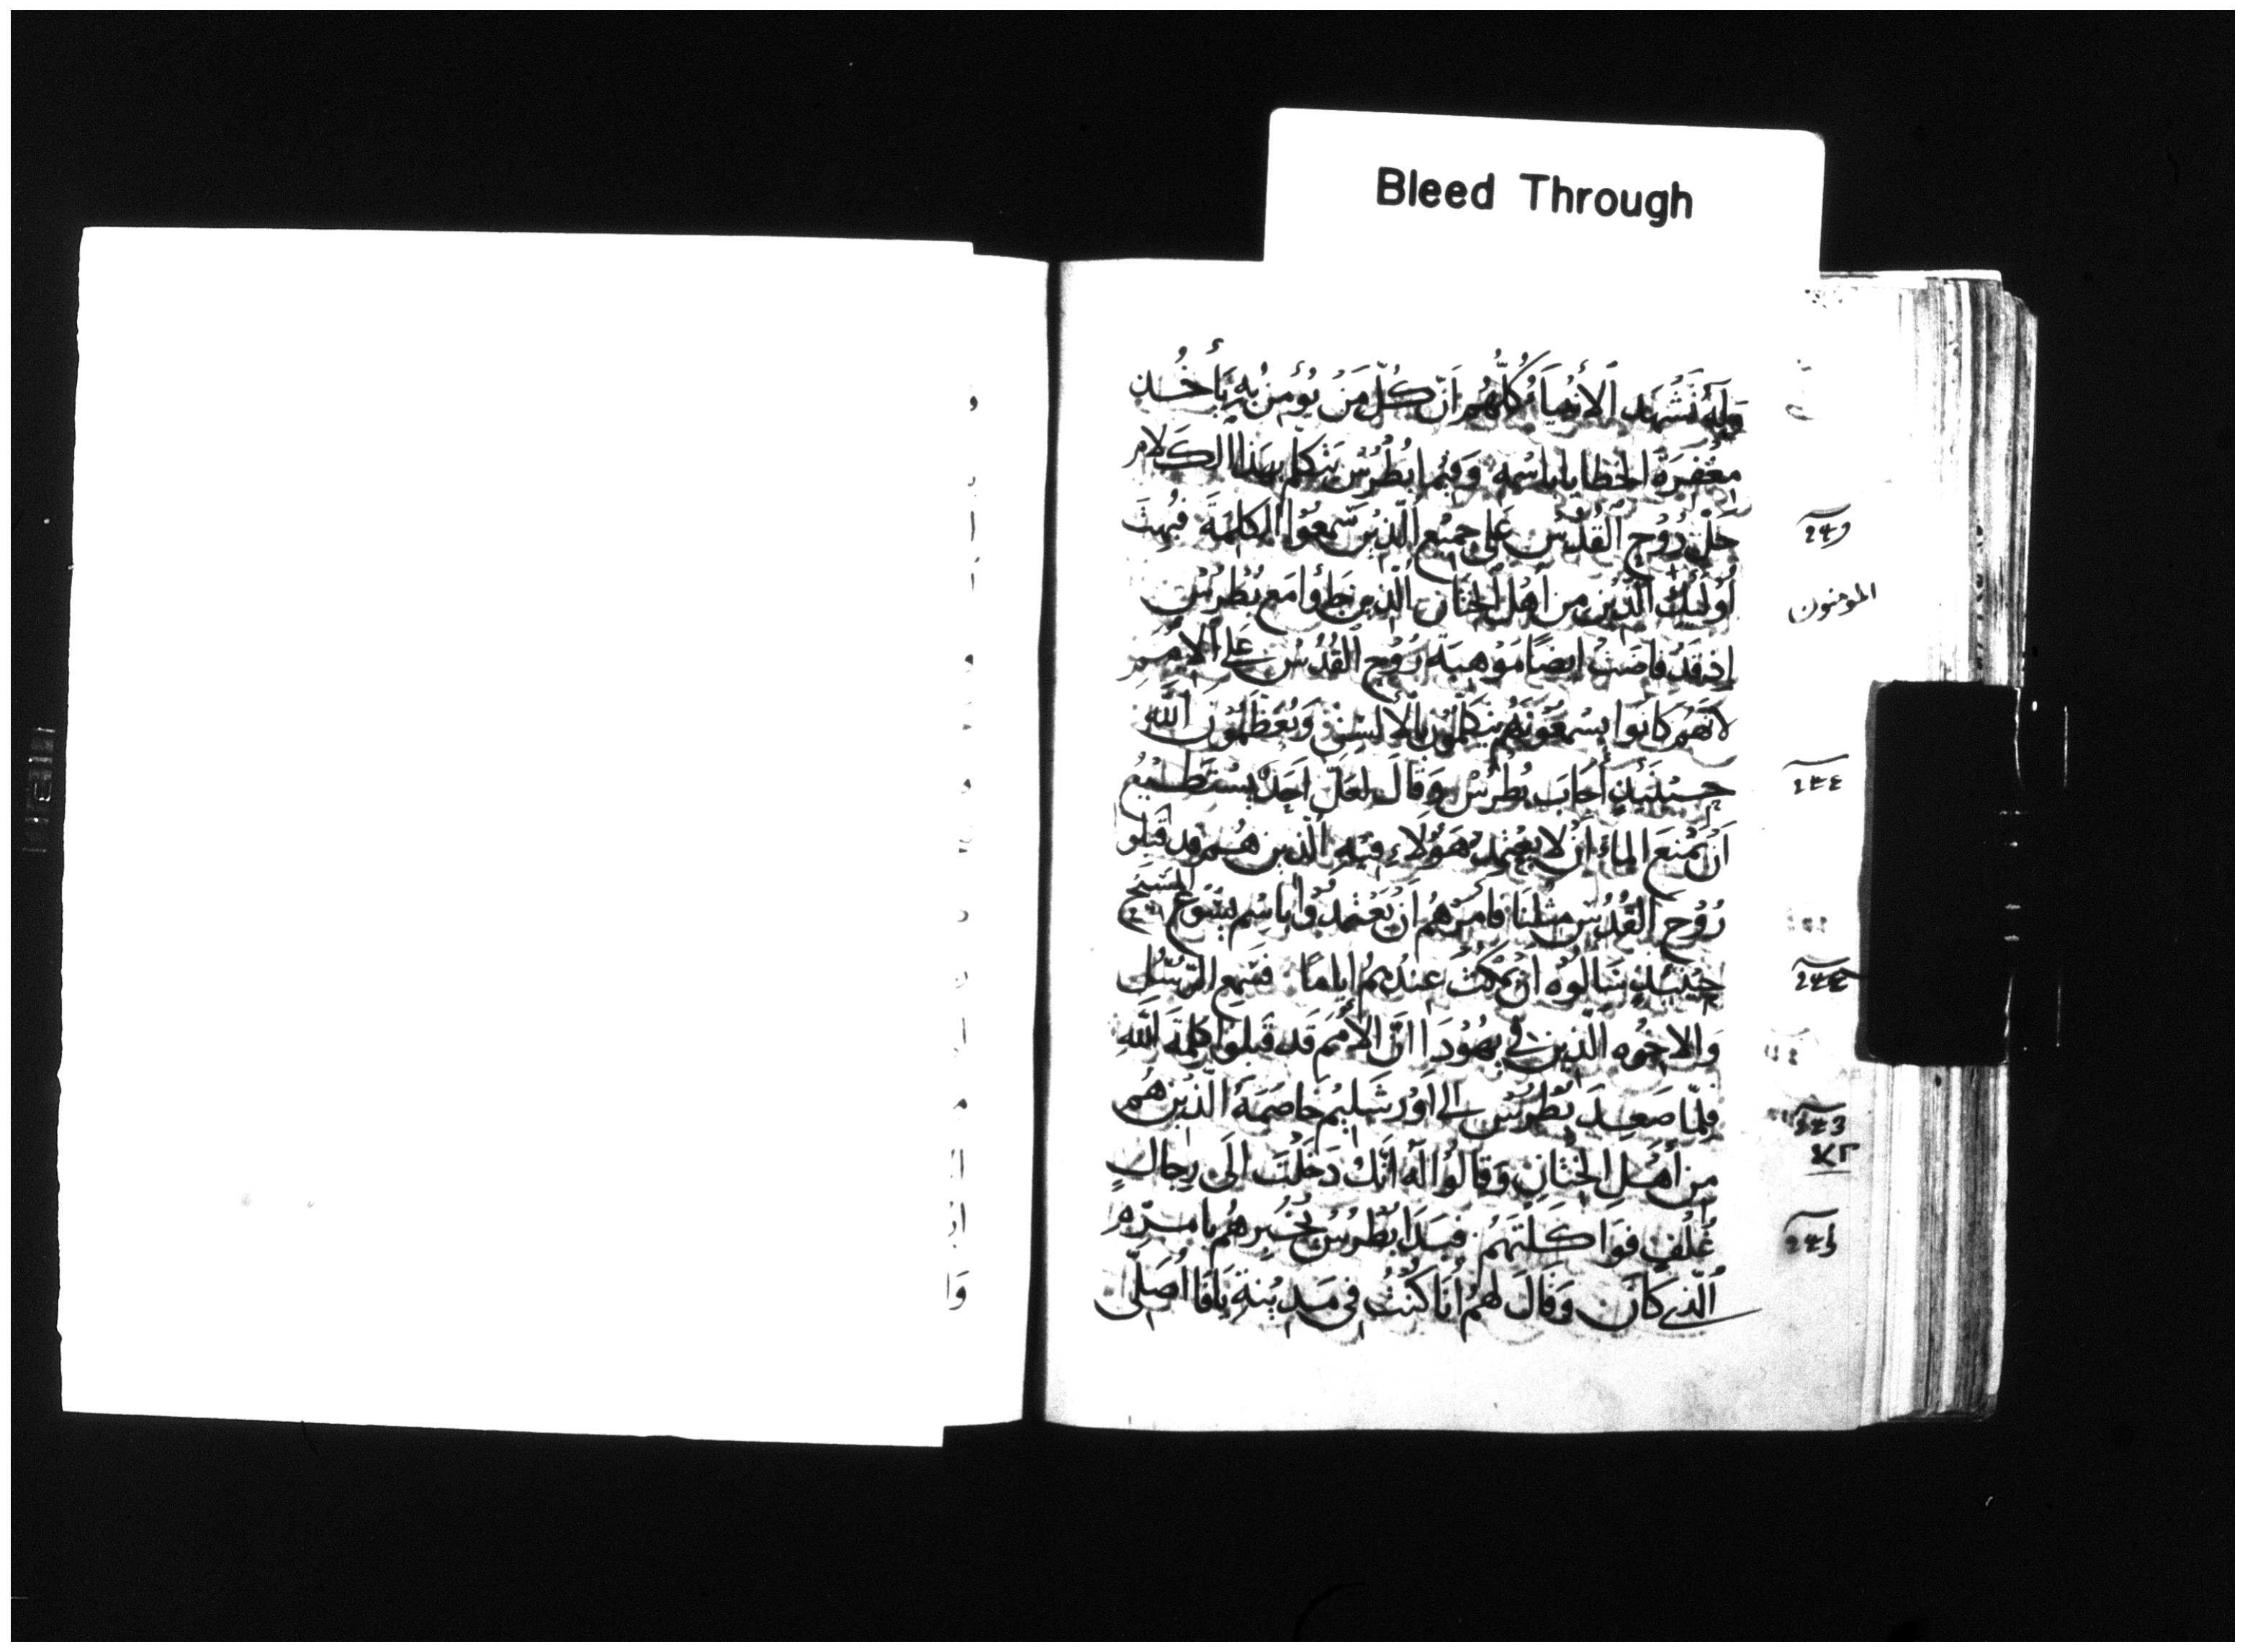 Bleed Through
وَلَهُ تَشْهَد الأنبيَاءُ كُلُّهُم اَنَّ كُلّ مَنْ يُؤمن بهِ يَأخُذ
مغْفِرَةُ الخطايا باسْمِه وَفيما بُطْرُسْ يَتكلم بهَذا الكَلام
حَلَّ رُوُح القُدْس على جميْع الّذيْنَ سَمعُوا الكلمة فبُهِتَ
أوُليكَ الّذيْن من اَهْل الختان الّذين جَاؤا مَع بُطرُسْ
اِذ قَدْ فاضَتْ ايضًا مَوْهبَة رُوُح القُدُسْ على الأمَم
لانّهُم كانُوا يسْمعُونَهُم يَتكلمُون بالالْسُن وَيُعَظّمُونَ اللّه
حِينَئِذٍ أجَابَ بُطرُسْ وَقالَ لعَلّ اَحَدْ يسْتَطيْعُ
اَنْ يمْنعَ الماء ان لا يعْتمد هَؤلاءِ فيْهِ الّذين هُم قد قبلوا
رُوُح القُدُس مثلنَا فامَرَهُم اَنْ يَعْتمدُوا باسْم يسُوع المسَيح
حِينَئذٍ سَالُوُه انْ يمْكُث عنْدهُمُ اياما فسَمِع الرُسُل
وَالاخوُه الّذين في يهُوُدَا انَّ الأُمَم قَد قَبلوا كلمة اللّهِ
فلمّا صَعِدَ بُطرُسْ الى اوُرشَليْم خاصَمَهُ الّذيْن هُم
من أهْلِ الختانِ وَقالُوا لَه اَنّكْ دَخَلْتَ الَى رِجالٍ
غُلْفٍ فوَاكَلْتَهُمْ فبدَا بُطْرُسْ يُخْبرهُم بامرِهِ
الّذي كَانَ وَقالَ لهُم أنَا كُنْتُ فى مَديْنة يَافَا اُصَلّى
المومنون